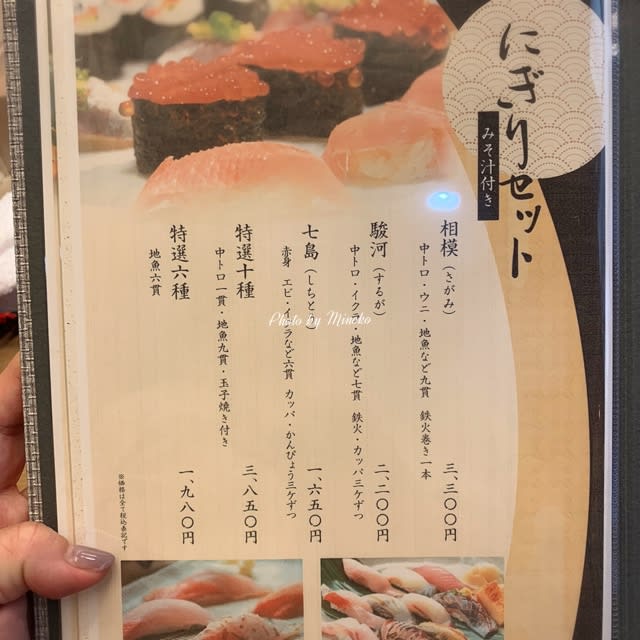 にぎりセット
みそ汁付き
相模（さがみ）
中トロ・ウニ・地魚など九貫 鉄火巻き一本
三、三〇〇円
駿河（するが）
中トロ・イクラ・地魚など七貫 鉄火・カッパ三ケずつ
二、二〇〇円
七島（しちとう）
赤身 エビ・イクラなど六貫 カッパ・かんぴょう三ケずつ
一、六五〇円
特選十種
中トロ一貫・地魚九貫・玉子焼き付き
三、八五〇円
特選六種
地魚六貫
一、九八〇円
※価格は全て税込表記です
Photo by Minoko